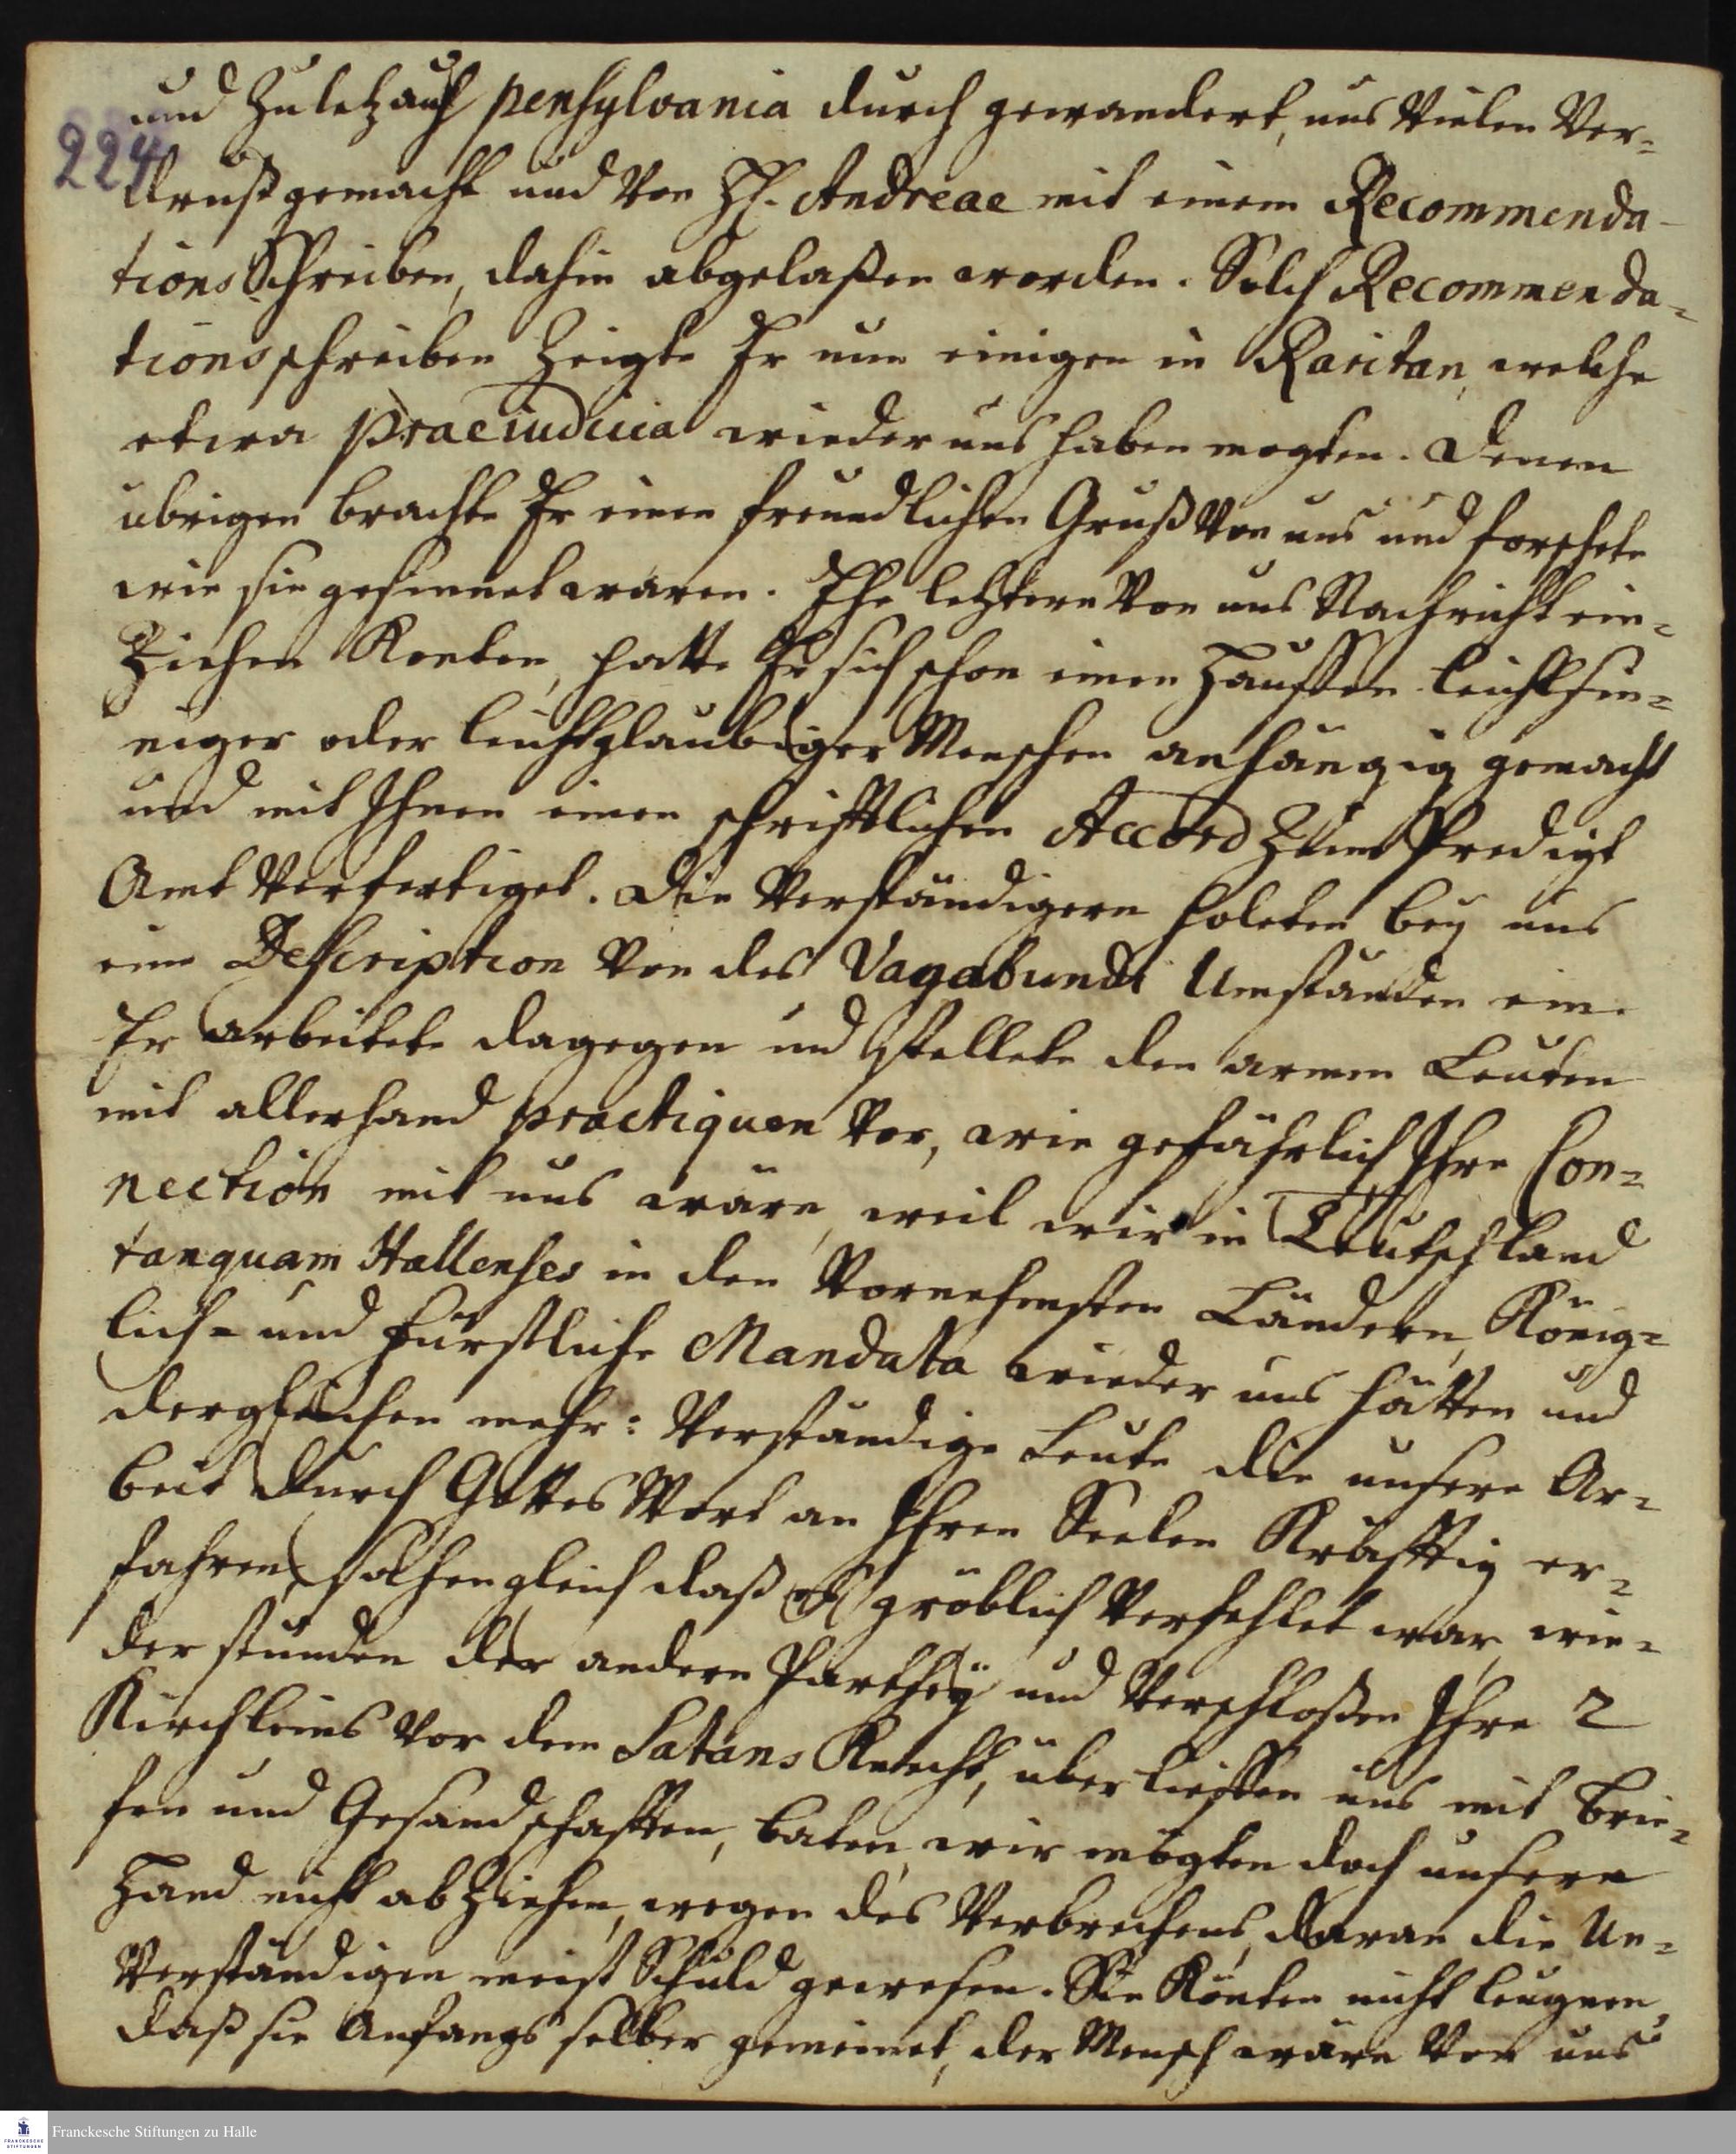 224
und Zuletz auch pensylvania durch gewandert, uns vielen Ver-
druß gemacht und von H. Andreae mit einem Recommenda-
tions Schreiben, dahin abgelaßen worden. Solch Recommenda-
tionsschreiben Zeigte Er nun einigen in Raritan, welche
etwa praeiudicia wieder uns haben mogten. Denen
übrigen brachte Er einen freundlichen Gruß von uns und forschete
wie sie gesinnet wären. Ehe letztere von uns Nachricht ein-
Ziehen Konten, hatte Er sich schon einen Hauffen leichtsin-
niger oder leichtglaubiger Menschen anhängig gemacht
und mit Ihnen einen schrifftlichen Accord Zum Predigt
Amt verfertiget. Die Verständigern holeten bey uns
eine Description von des Vagabundi Umständen ein.
Er arbeitete dagegen und stellete den armen Leuten
mit allerhand practiquen vor, wie gefährlich Ihre Con-
nection mit uns wäre, weil wir in Teutschland
tanquam Hallenses in den Vornehmsten Ländern, König-
lich- und Fürstliche Mandata wieder uns hätten und
dergleichen mehr: Verständige Leute die unsere Ar-
beit durch Gottes Wort an Ihren Seelen Kräfftig er-
fahren, sahen gleich daß es gröblich Verfehlet war, wie-
der stunden der andern Parthey und Verschloßen Ihre 2
Kirchleins vor dem Satans Knecht, überliefften uns mit Brie-
fen und Gesandschafften, baten, wir mögten doch unsere
Hand nicht abZiehen, wegen des Verbrechens, daran die Un-
Verständigen meist Schuld gewesen. Sie Könten nicht leugnen,
daß sie Anfangs selber gemeinet, der Mensch wäre von uns
Franckesche Stiftungen zu Halle